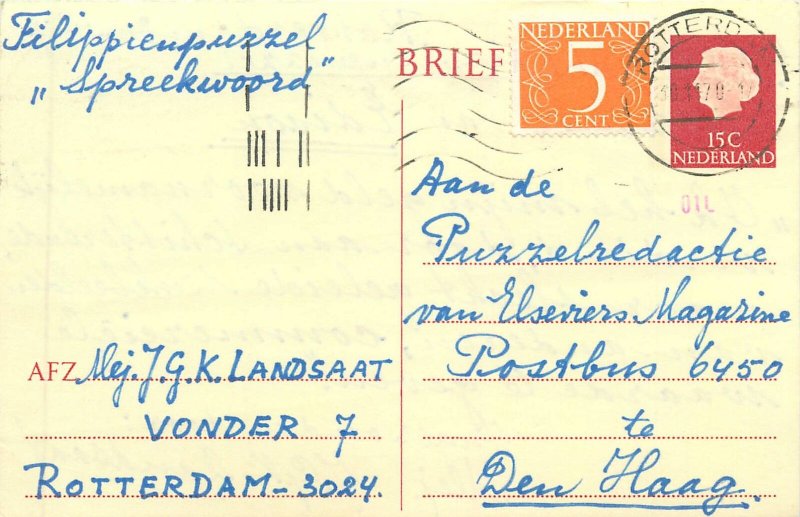 Filippienpuzzel
"Spreekwoord"
BRIEF
NEDERLAND
5
CENT
ROTTERDA
15C
NEDERLAND
Aan de
Puzzelredactie
van Elseviers Magazine
Postbus 6450
te
Den Haag.
AFZ Mej. J.G.K. LANDSAAT
VONDER 7
ROTTERDAM-3024.